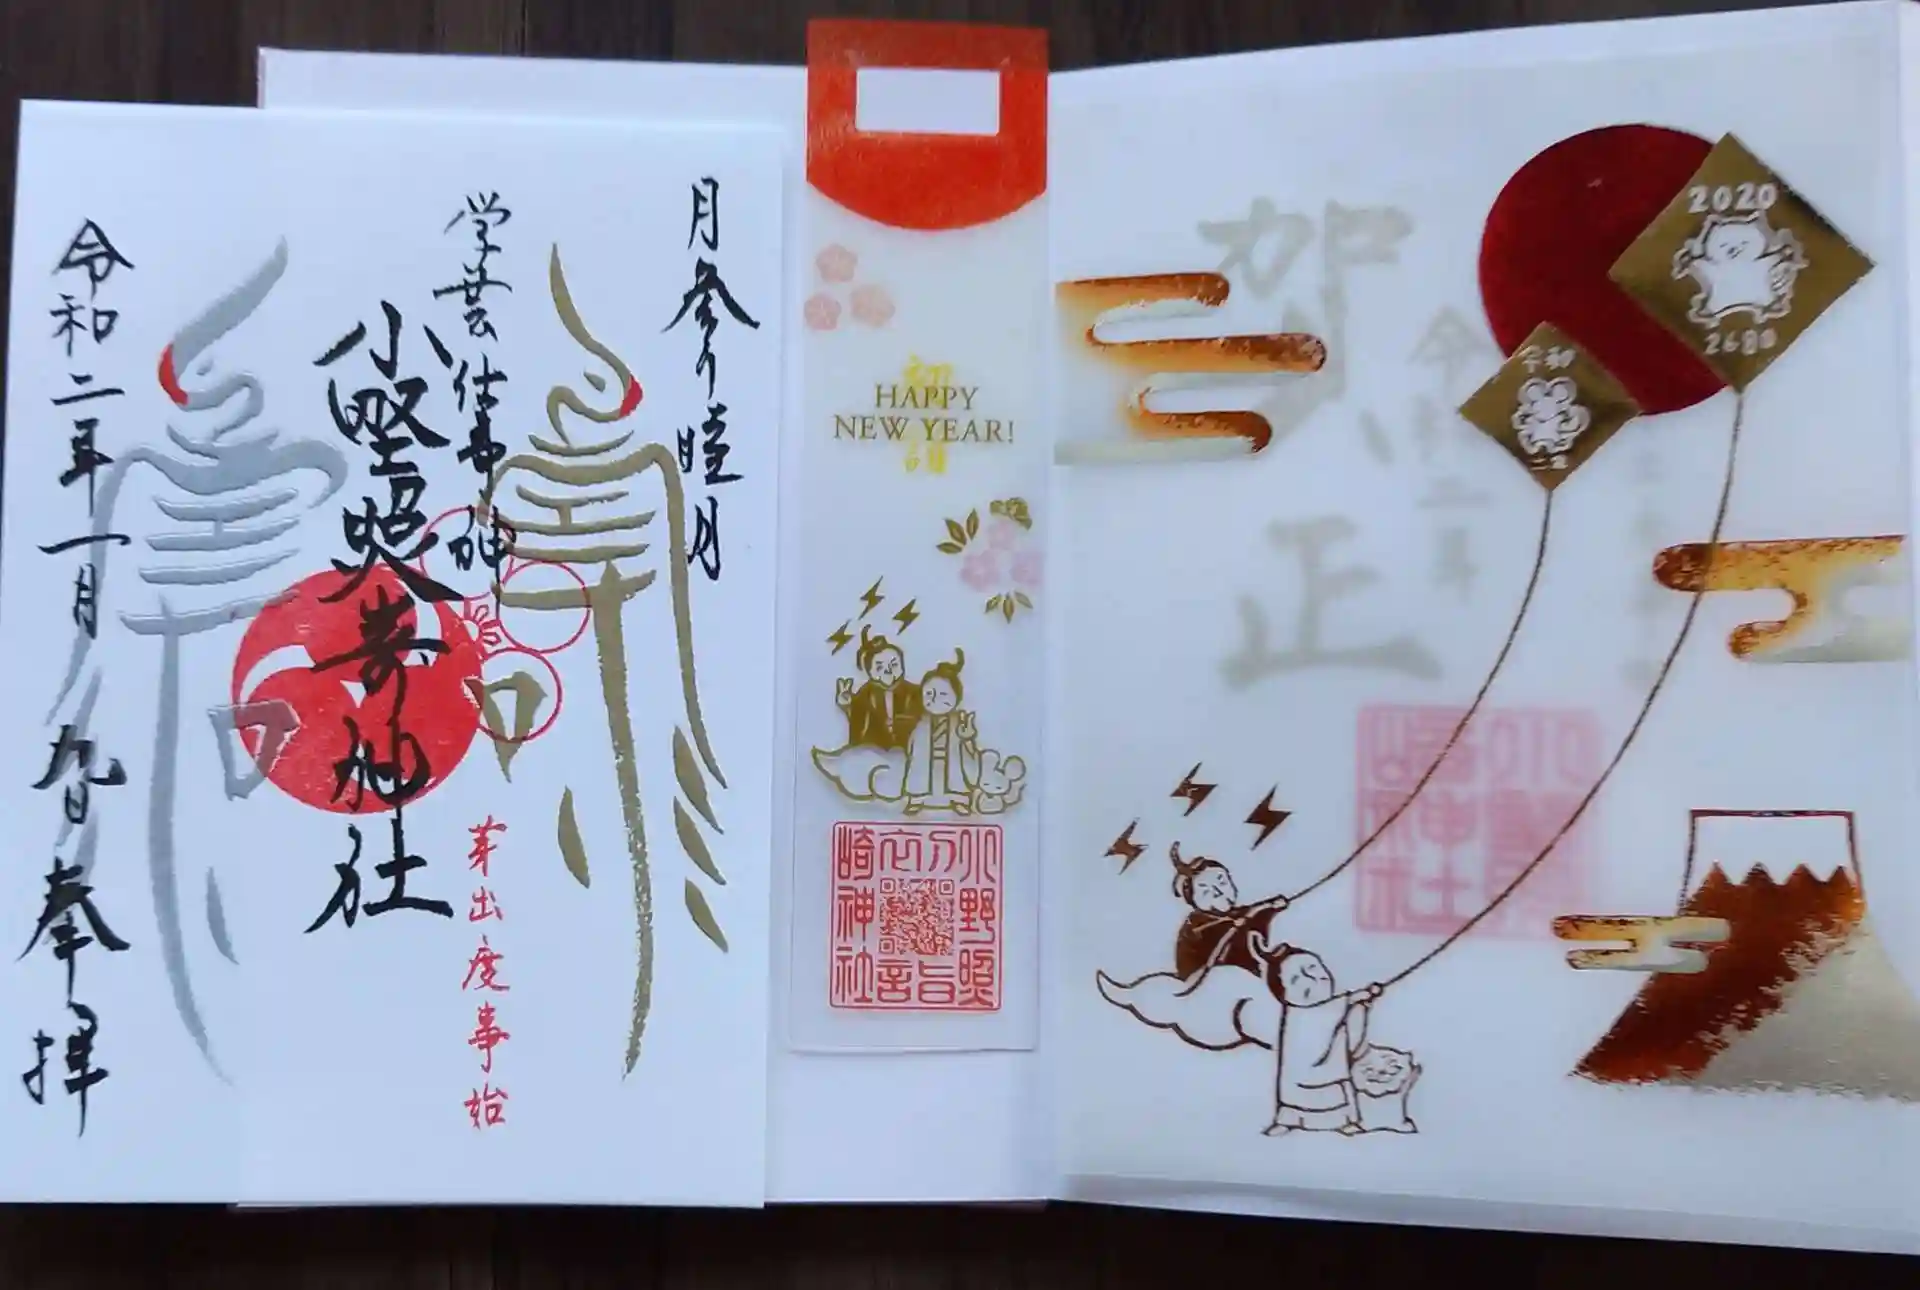 月参り睦月
学芸仕事神
小野照崎神社
芽出度事始
令和二年一月九日 奉拝
初
HAPPY
NEW YEAR!
詣
小野照
崎神社
賀正
令和二年
2020
2680
令和
二年
小野照
崎神社